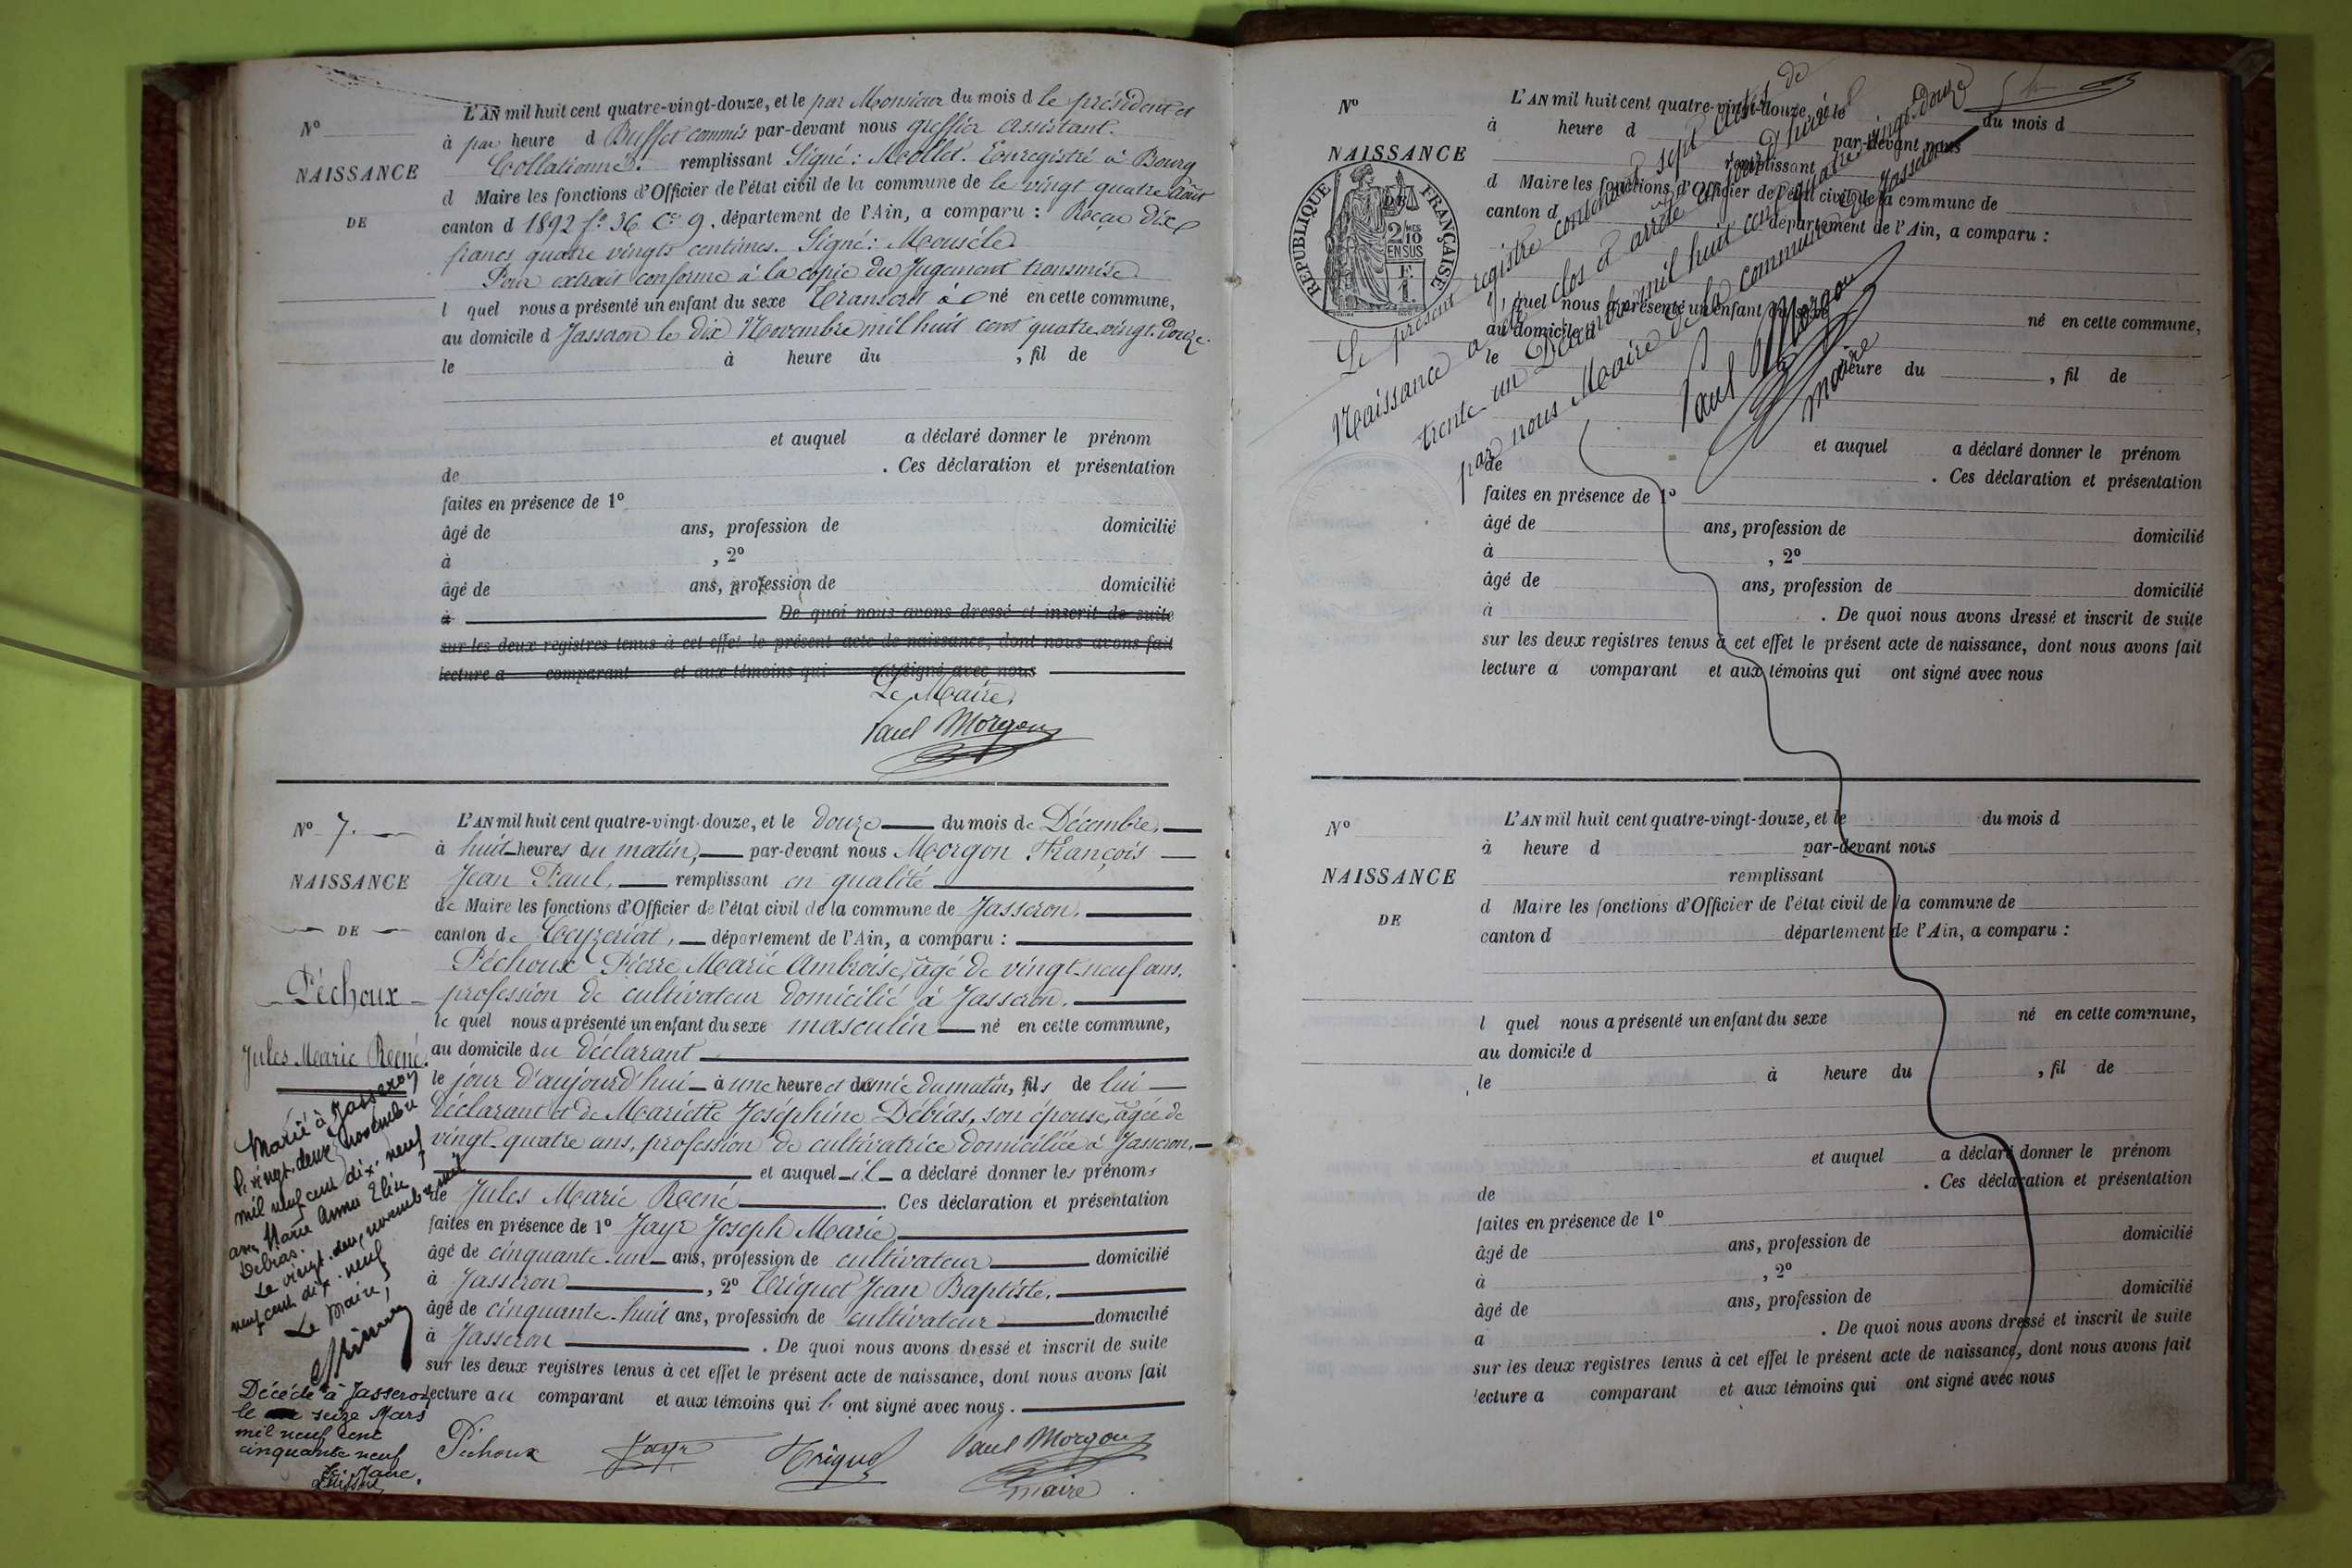 L'AN mil huit cent quatre-vingt-douze, et le par Monsieur du mois d le président et
N° à par heure d Buffet commis par-devant nous greffier assistant.
Collationné. remplissant Signé: Mollet. Enregistré à Bourg
NAISSANCE d Maire les fonctions d'Officier de l'état civil de la commune de le vingt quatre août
DE canton d 1892 f° 36 C° 9. département de l'Ain, a comparu : Reçu dix
francs quatre vingts centimes. Signé:
Pour extrait conforme à la copie du Jugement transmise
l quel nous a présenté un enfant du sexe Transcrit à né en cette commune,
au domicile d Jasseron le dix Novembre mil huit cent quatre vingt douze.
le à heure du , fil de
et auquel a déclaré donner le prénom
de . Ces déclaration et présentation
faites en présence de 1°
âgé de ans, profession de domicilié
à , 2°
âgé de ans, profession de domicilié
à De quoi nous avons dressé et inscrit de suite
sur les deux registres tenus à cet effet le présent acte de naissance, dont nous avons fait
lecture a comparant et aux témoins qui ont signé avec nous
Le Maire,
Paul Morgon
N° 7. L'AN mil huit cent quatre-vingt-douze, et le douze du mois de Décembre,
à huit heures du matin, par-devant nous Morgon François
NAISSANCE Jean Paul, remplissant en qualité
de Maire les fonctions d'Officier de l'état civil de la commune de Jasseron,
DE canton de Ceyzeriat, département de l'Ain, a comparu :
Péchoux Pierre Marie Ambroise, âgé de vingt-neuf ans,
Péchoux profession de cultivateur domicilié à Jasseron,
le quel nous a présenté un enfant du sexe masculin né en cette commune,
Jules Marie René. au domicile du déclarant
le jour d'aujourd'hui à une heure et demie du matin, fils de lui
déclarant et de Mariette Joséphine Débias, son épouse, âgée de
vingt-quatre ans, profession de cultivatrice domiciliée à Jasseron,
et auquel il a déclaré donner les prénoms
de Jules Marie René . Ces déclaration et présentation
faites en présence de 1° Jayr Joseph Marie,
âgé de cinquante-un ans, profession de cultivateur domicilié
à Jasseron , 2° Triquet Jean Baptiste,
âgé de cinquante-huit ans, profession de cultivateur domicilié
à Jasseron . De quoi nous avons dressé et inscrit de suite
sur les deux registres tenus à cet effet le présent acte de naissance, dont nous avons fait
lecture au comparant et aux témoins qui ont signé avec nous.
Péchoux Jayr Triquet Paul Morgon
maire
Marié à Jasseron
le vingt-deux novembre
mil neuf cent dix-neuf
avec Marie Anna Elise
Debias.
Le vingt-deux novembre mil
neuf cent dix-neuf
Le Maire,
Décédé à Jasseron
le seize Mars
mil neuf cent
cinquante neuf
Le Maire,
L'AN mil huit cent quatre-vingt-douze, et le du mois d
N° à heure d par-devant nous
NAISSANCE remplissant
d Maire les fonctions d'Officier de l'état civil de la commune de
DE canton d département de l'Ain, a comparu :
REPUBLIQUE FRANÇAISE
2/10 MES
EN SUS
l quel nous a présenté un enfant du sexe né en cette commune,
au domicile d
le heure du , fil de
Le présent registre contenant sept actes de
Naissance a été clos et arrêté
trente un Décembre mil huit cent quatre-vingt-douze
par nous Maire de la commune de Jasseron
Paul Morgon
maire
et auquel a déclaré donner le prénom
de . Ces déclaration et présentation
faites en présence de 1°
âgé de ans, profession de domicilié
à , 2°
âgé de ans, profession de domicilié
à . De quoi nous avons dressé et inscrit de suite
sur les deux registres tenus à cet effet le présent acte de naissance, dont nous avons fait
lecture a comparant et aux témoins qui ont signé avec nous
N° L'AN mil huit cent quatre-vingt-douze, et le du mois d
à heure d par-devant nous
NAISSANCE remplissant
d Maire les fonctions d'Officier de l'état civil de la commune de
DE canton d département de l'Ain, a comparu :
l quel nous a présenté un enfant du sexe né en cette commune,
au domicile d
le à heure du , fil de
et auquel a déclaré donner le prénom
de . Ces déclaration et présentation
faites en présence de 1°
âgé de ans, profession de domicilié
à , 2°
âgé de ans, profession de domicilié
a . De quoi nous avons dressé et inscrit de suite
sur les deux registres tenus à cet effet le présent acte de naissance, dont nous avons fait
lecture a comparant et aux témoins qui ont signé avec nous